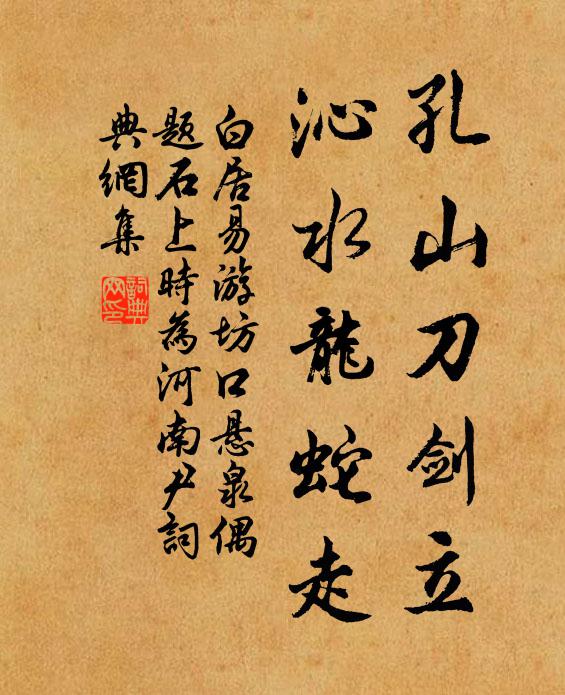 孔山刀剑立
沁水龍蛇走
白居易游坊口悬泉偶
题石上時為河南尹詞
典網集
詞典网印